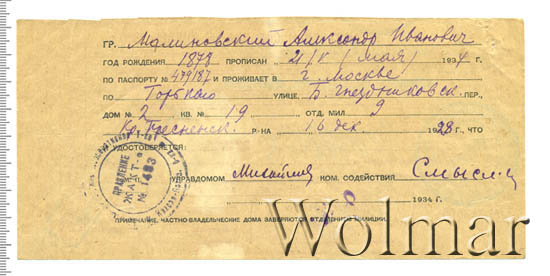 ГР. Малиновский Александр Иванович
ГОД РОЖДЕНИЯ 1878 ПРОПИСАН 21/V (мая) 1934 г.
ПО ПАСПОРТУ № 479187 И ПРОЖИВАЕТ В г. Москве
ПО Горького УЛИЦЕ, Б. Гнездниковск. ПЕР.,
ДОМ № 2 КВ. № 19 ОТД. МИЛ 9
Кр. Пресненск. Р-НА 16 дек. 1928 Г., ЧТО
И УДОСТОВЕРЯЕТСЯ:
УПРАВДОМОМ КОМ. СОДЕЙСТВИЯ
ПРАВЛЕНИЕ
ЖАКТ-а
№ 1483
1934 г.
ПРИМЕЧАНИЕ. ЧАСТНО-ВЛАДЕЛЬЧЕСКИЕ ДОМА ЗАВЕРЯЮТСЯ ОТДЕЛЕНИЕМ МИЛИЦИИ.
Wolmar